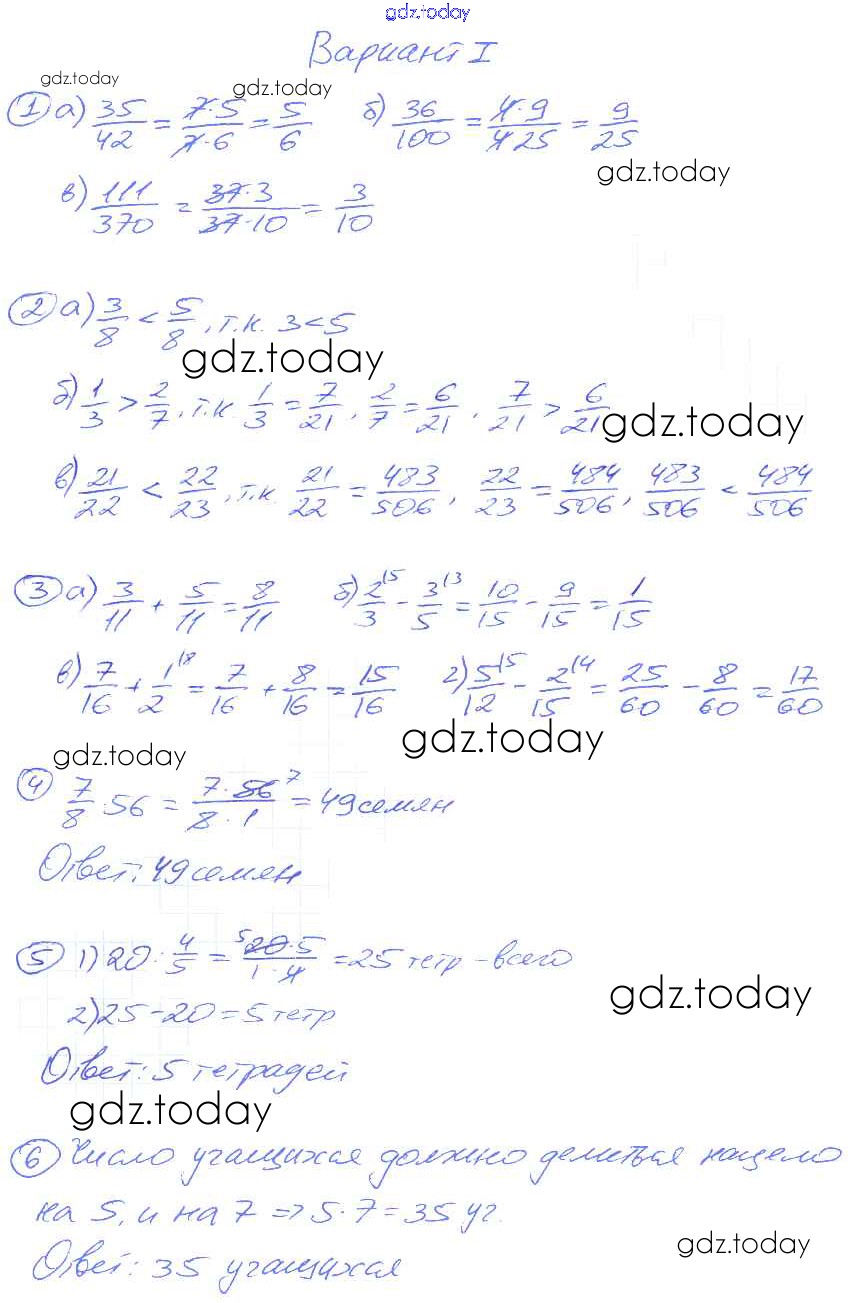 gdz.today
Вариант I
gdz.today gdz.today
① а) 35/42 = 7·5/7·6 = 5/6 б) 36/100 = 4·9/4·25 = 9/25
gdz.today
в) 111/370 = 37·3/37·10 = 3/10
② а) 3/8 < 5/8, т.к. 3<5
gdz.today
б) 1/3 > 2/7, т.к. 1/3 = 7/21, 2/7 = 6/21, 7/21 > 6/21
gdz.today
в) 21/22 < 22/23, т.к. 21/22 = 483/506, 22/23 = 484/506, 483/506 < 484/506
③ а) 3/11 + 5/11 = 8/11 б) 2/3 ⁾⁵ - 3/5 ⁾³ = 10/15 - 9/15 = 1/15
в) 7/16 + 1/2 ⁾⁸ = 7/16 + 8/16 = 15/16 г) 5/12 ⁾⁵ - 2/15 ⁾⁴ = 25/60 - 8/60 = 17/60
gdz.today gdz.today
④ 7/8 · 56 = 7·56 ⁷/8·1 = 49 семян
Ответ: 49 семян
⑤ 1) 20 : 4/5 = ⁵20·5/1·4 = 25 тетр - всего
gdz.today
2) 25 - 20 = 5 тетр
Ответ: 5 тетрадей
gdz.today
⑥ Число учащихся должно делиться нацело
на 5, и на 7 => 5·7 = 35 уч.
gdz.today
Ответ: 35 учащихся